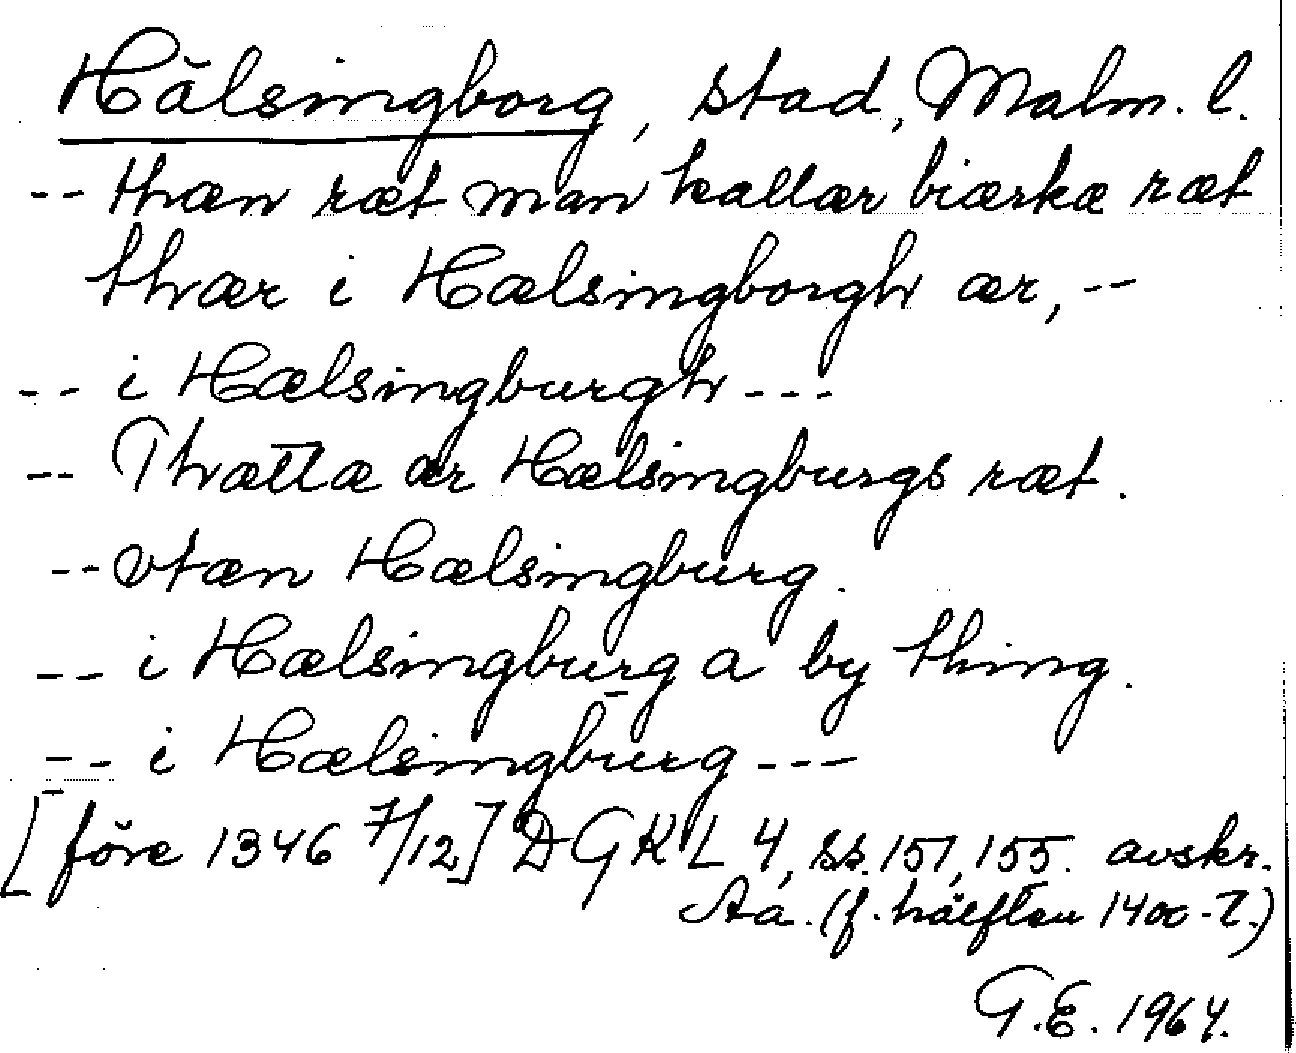 Hälsingborg, stad, Malm. l.
-- thæn ræt man kallær biærkæ ræt
thær i Hælsingborgh ær, --
-- i Hælsingburgh ---
-- Thættæ ær Hælsingburgs ræt.
-- vtæn Hælsingburg.
-- i Hælsingburg a by thing.
-- i Hælsingburg ---
[före 1346 7/12] DGKL 4, ss. 151, 155. avskr.
Aa. (f. hälften 1400-t.)
G.E. 1964.